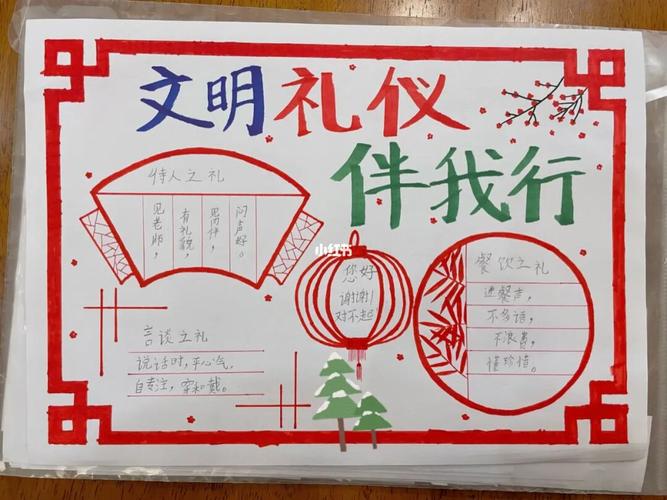 文明礼仪
伴我行
待人之礼
见老师，
有礼貌，
遇同伴，
问声好。
小红书
您好
谢谢！
对不起
餐饮之礼
进餐声，
不多话，
不浪费，
懂珍惜。
言谈之礼
说话时，平心气，
自专注，穿和戴。